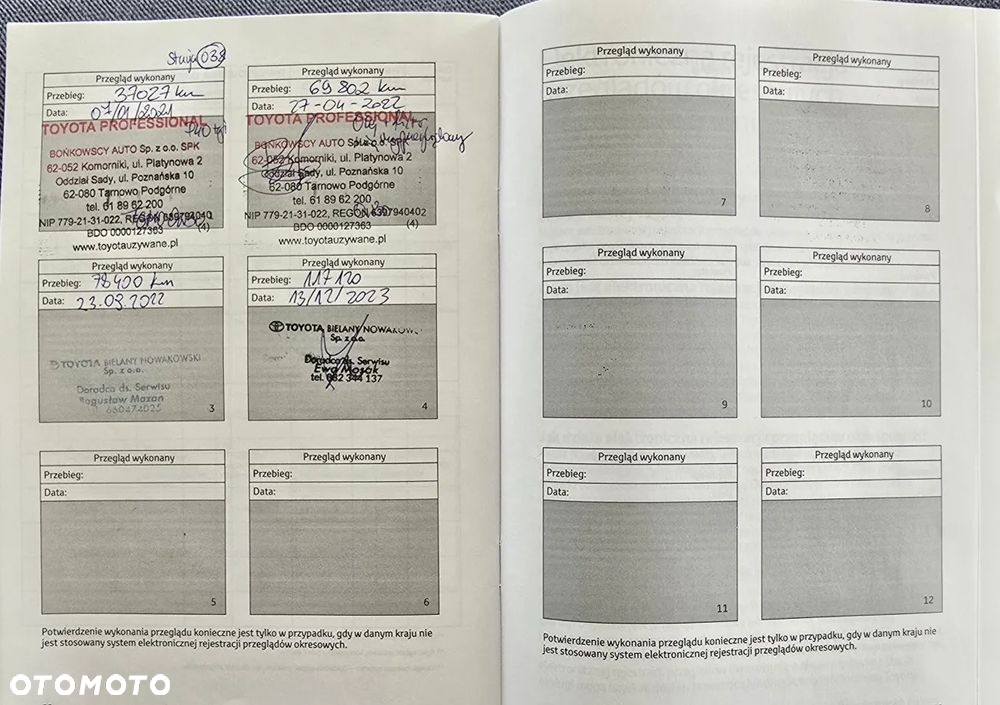 038
Przegląd wykonany
Przebieg: 37027 km
Data: 07/01/2021
TOYOTA PROFESSIONAL
BOŃKOWSCY AUTO Sp. z o.o. SPK
62-052 Komorniki, ul. Platynowa 2
Oddział Sady, ul. Poznańska 10
62-080 Tarnowo Podgórne
tel. 61 89 62 200
NIP 779-21-31-022, REGON
BDO 0000127363
www.toyotauzywane.pl
Przegląd wykonany
Przebieg: 69802 km
Data: 27-04-2022
TOYOTA PROFESSIONAL
Olej + filtr
BOŃKOWSCY AUTO Sp. z o.o. SPK
62-052 Komorniki, ul. Platynowa 2
Oddział Sady, ul. Poznańska 10
62-080 Tarnowo Podgórne
tel. 61 89 62 200
NIP 779-21-31-022, REGON 6397940402
BDO 0000127363 (4)
www.toyotauzywane.pl
Przegląd wykonany
Przebieg: 78400 km
Data: 23.09.2022
TOYOTA BIELANY NOWAKOWSKI
Sp. z o.o.
Doradca ds. Serwisu
Bogusław Mazan
3
Przegląd wykonany
Przebieg: 117120
Data: 13/12/2023
TOYOTA BIELANY NOWAKOWSKI
Sp. z o.o.
Doradca ds. Serwisu
Ewa Mosak
tel. 662 344 137
4
Przegląd wykonany
Przebieg:
Data:
5
Przegląd wykonany
Przebieg:
Data:
6
Potwierdzenie wykonania przeglądu konieczne jest tylko w przypadku, gdy w danym kraju nie
jest stosowany system elektronicznej rejestracji przeglądów okresowych.
Przegląd wykonany
Przebieg:
Data:
7
Przegląd wykonany
Przebieg:
Data:
8
Przegląd wykonany
Przebieg:
Data:
9
Przegląd wykonany
Przebieg:
Data:
10
Przegląd wykonany
Przebieg:
Data:
11
Przegląd wykonany
Przebieg:
Data:
12
Potwierdzenie wykonania przeglądu konieczne jest tylko w przypadku, gdy w danym kraju nie
jest stosowany system elektronicznej rejestracji przeglądów okresowych.
OTOMOTO